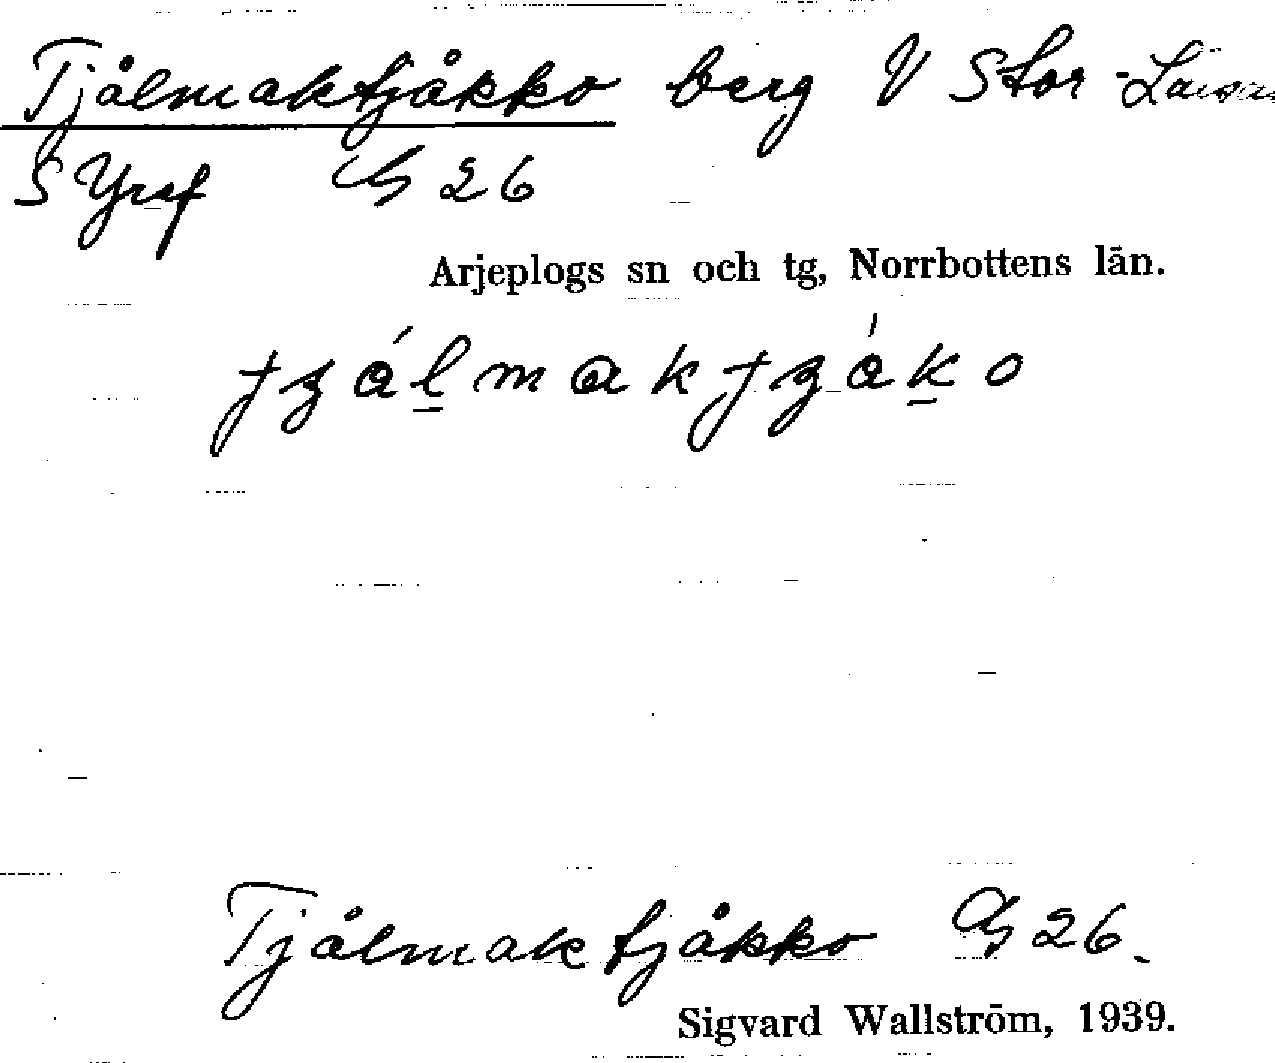 Tjålmaktjåkko berg V Stor-Laisan
S Yraf G 26
Arjeplogs sn och tg, Norrbottens län.
Tjålmaktjåkko G 26.
Sigvard Wallström, 1939.